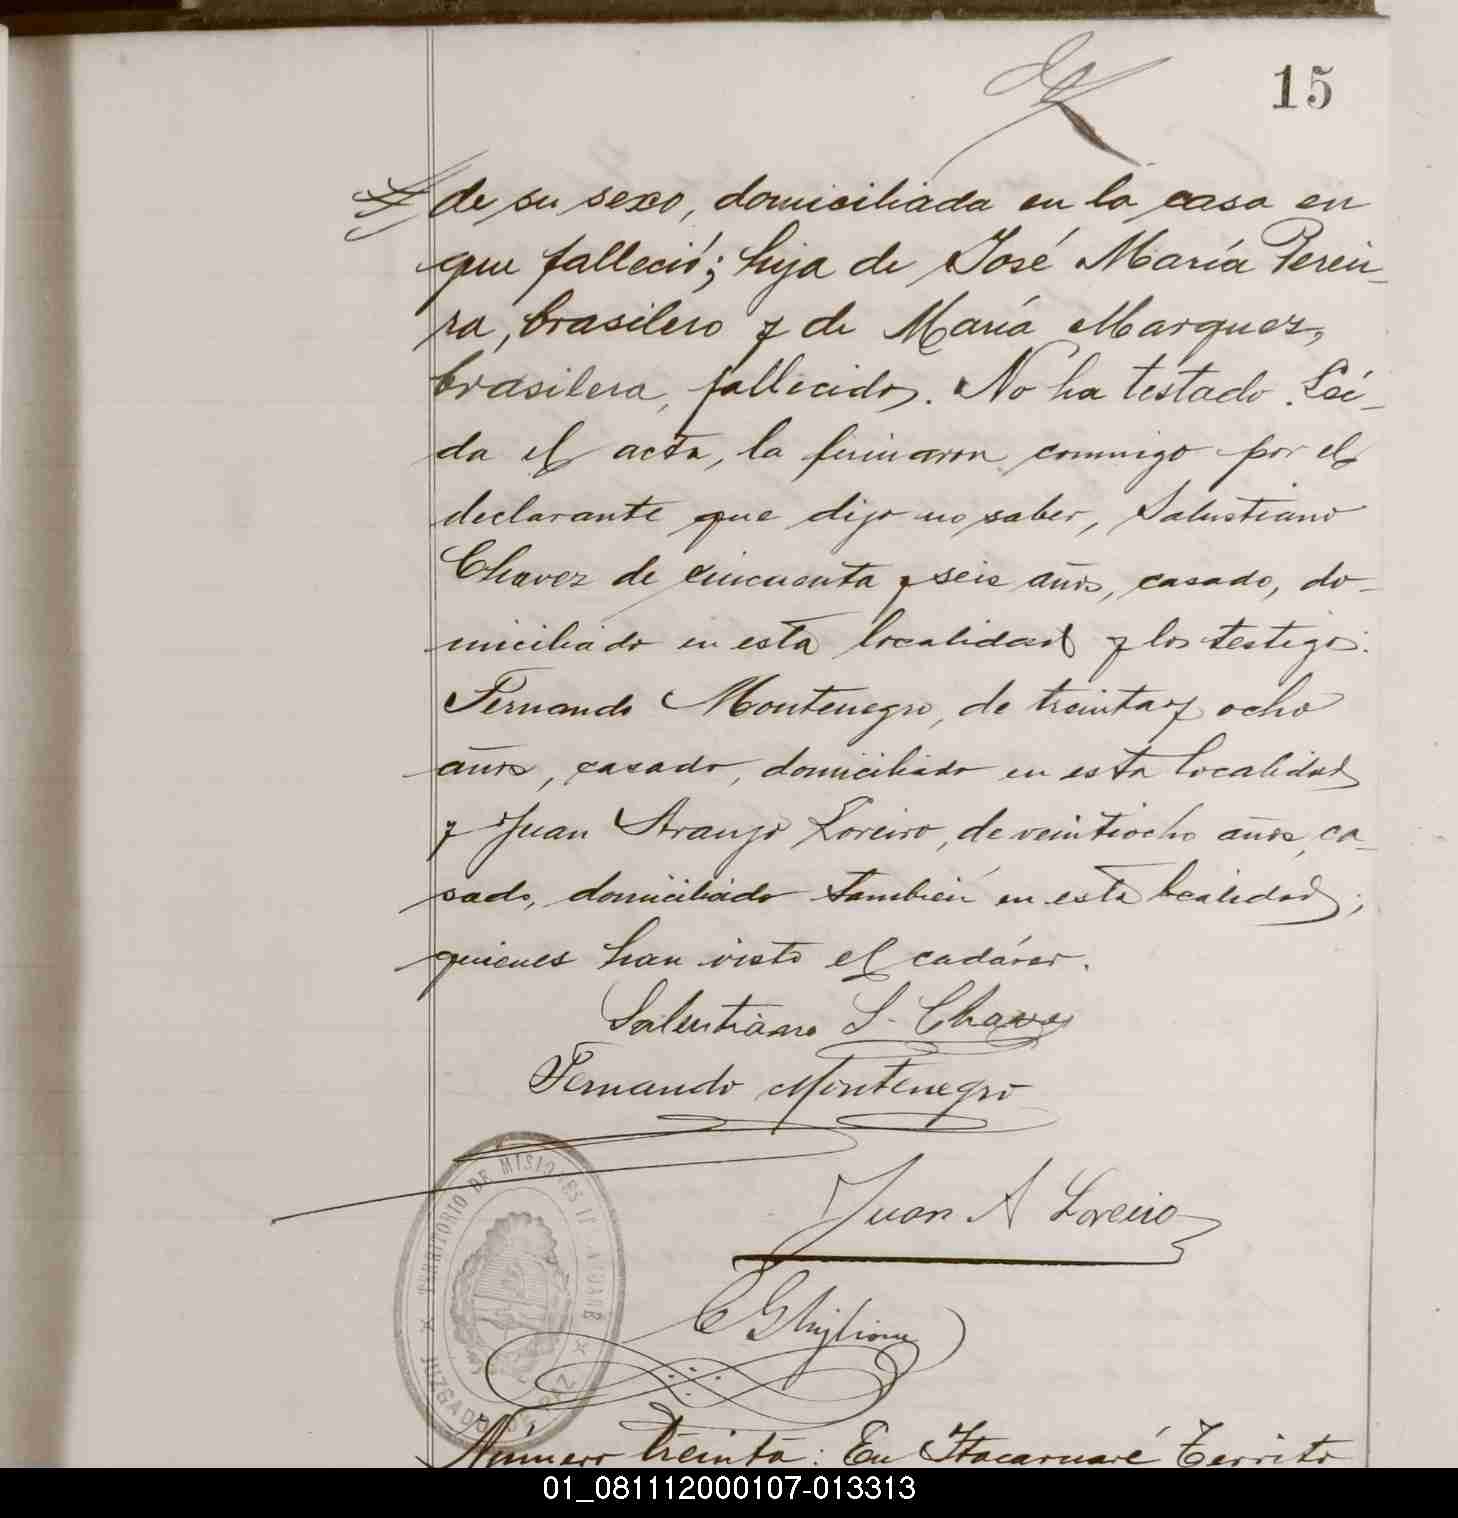 15
de su sexo, domiciliada en la casa en
que falleció; hija de José María Perei-
ra, brasilero y de María Marquez,
brasilera, fallecidos. No ha testado. Leí-
da el acta, la firmaron conmigo por el
declarante que dijo no saber, Salustiano
Chavez de cincuenta y seis años, casado, do-
miciliado en esta localidad y los testigos:
Fernando Montenegro, de treinta y ocho
años, casado, domiciliado en esta localidad
y Juan Araujo Loreiro, de veintiocho años, ca-
sado, domiciliado también en esta localidad;
quienes han visto el cadáver.
Salustiano S. Chavez
Fernando Montenegro
TERRITORIO DE MISIONES
Juan A Loreiro
C Ghiglione
JUZGADO DE PAZ
Número treinta: En Itacaruaré Territo
01_081112000107-013313